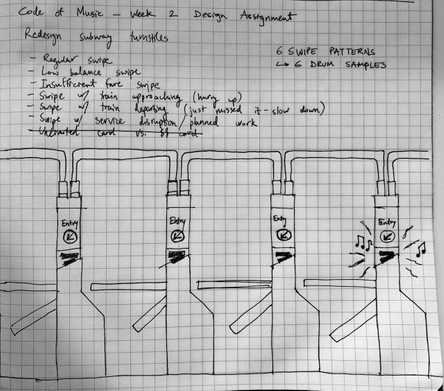 Code of Music – Week 2 Design Assignment
Redesign subway turnstiles
- Regular swipe
- Low balance swipe
- Insufficient fare swipe
- Swipe w/ train approaching (hurry up)
- Swipe w/ train departing (just missed it - slow down)
- Swipe w/ service disruption/planned work
- Unlimited card vs. $$ card
6 SWIPE PATTERNS
↳ 6 DRUM SAMPLES
Entry
Entry
Entry
Entry